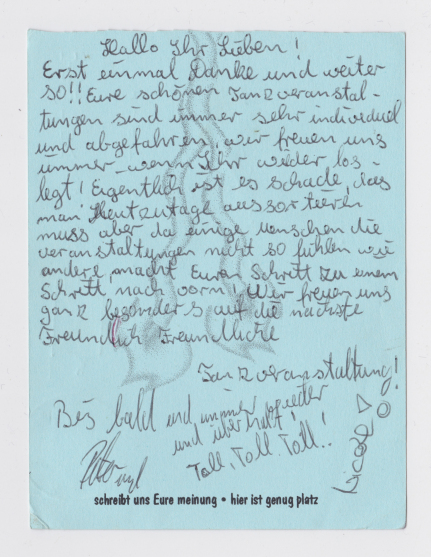 Hallo Ihr Lieben!
Erst einmal Danke und weiter
so!! Eure schönen Tanzveranstal-
tungen sind immer sehr individuell
und abgefahren, wir freuen uns
immer wenn Ihr wieder los-
legt! Eigentlich ist es schade, das
man Heutzutage aussortieren
muss aber da einige menschen die
veranstaltungen nicht so fühlen wie
andere, macht Euren Schritt zu einem
Schritt nach vorn. Wir freuen uns
ganz besonders auf die nächste
Freundlich Freundliche
Tanzveranstaltung!
Bis bald und immer wieder
und überhaupt!
Toll, Toll, Toll!!
Peter und
Nicole
schreibt uns Eure meinung • hier ist genug platz